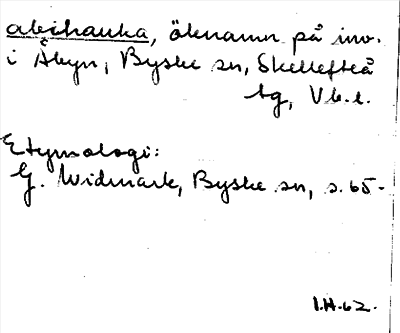 abihauka, öknamn på inv.
i Åbyn, Byske sn, Skellefteå
tg, Vb.l.
Etymologi:
G. Widmark, Byske sn, s. 65-
I.H. 62.